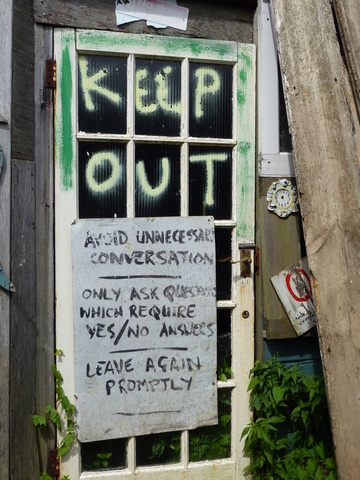 KEEP
OUT
AVOID UNNECESSARY
CONVERSATION
ONLY ASK QUESTIONS
WHICH REQUIRE
YES/NO ANSWERS
LEAVE AGAIN
PROMPTLY